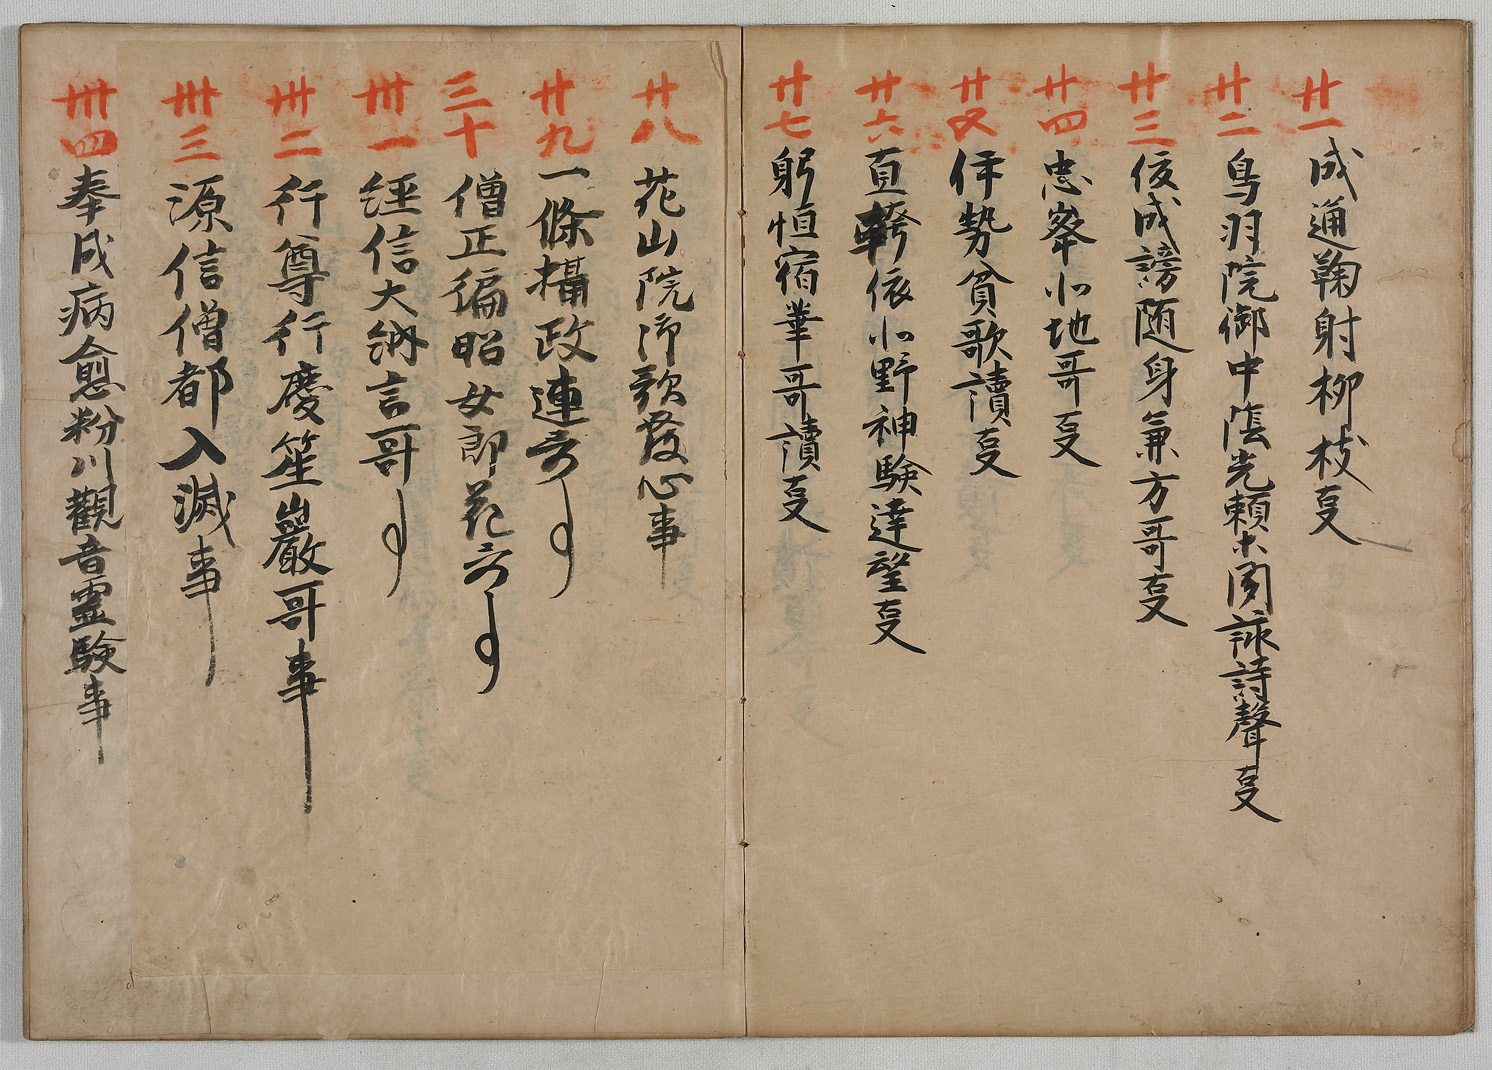 廿一 成通鞠射柳枝叓
廿二 鳥羽院御中陰光頼木関詠詩聲叓
廿三 俊成謗随身兼方哥叓
廿四 忠峯小地哥叓
廿五 伊勢貧歌讀叓
廿六 直幹依小野神験達望叓
廿七 躬恒宿華哥讀叓
廿八 花山院御歌發心事
廿九 一條攝政連哥事
三十 僧正徧昭女郎花哥事
卅一 経信大納言哥事
卅二 行尊行慶笙巖哥事
卅三 源信僧都入滅事
卅四 奉成病愈粉川觀音霊験事